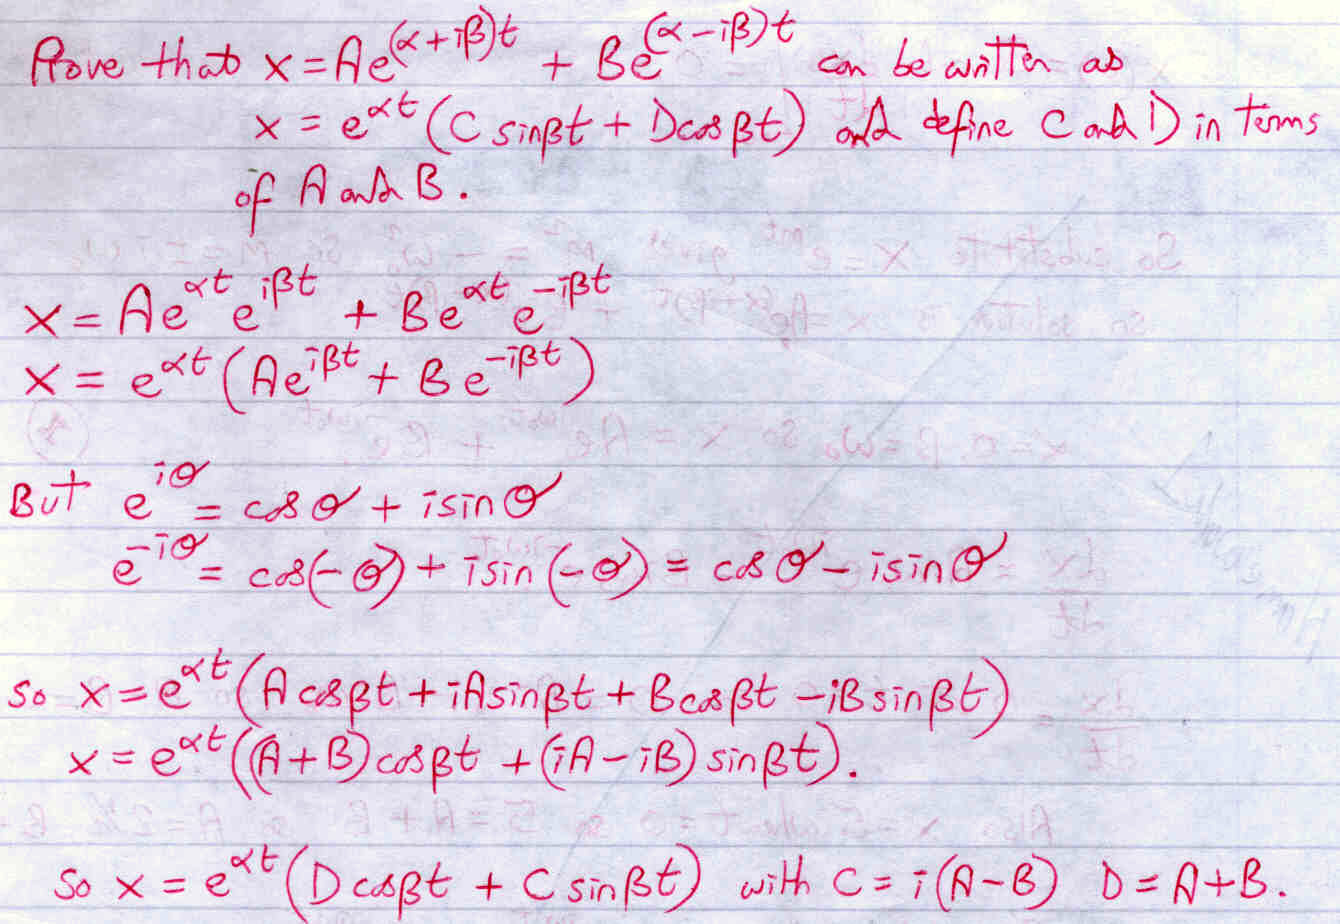 Prove that x = Ae^(α+iβ)t + Be^(α-iβ)t can be written as
x = e^αt (C sinβt + D cosβt) and define C and D in terms
of A and B.
x = Ae^αt e^iβt + Be^αt e^-iβt
x = e^αt (Ae^iβt + Be^-iβt)
But e^iθ = cosθ + isinθ
e^-iθ = cos(-θ) + isin(-θ) = cosθ - isinθ
So x = e^αt (A cosβt + iAsinβt + Bcosβt - iBsinβt)
x = e^αt ((A+B)cosβt + (iA-iB) sinβt).
So x = e^αt (D cosβt + C sinβt) with C = i(A-B) D = A+B.